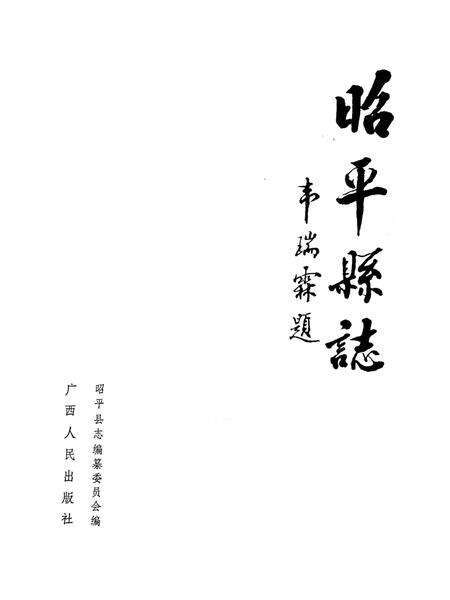 昭平縣誌
韦瑞霖題
昭平县志编纂委员会编
广西人民出版社